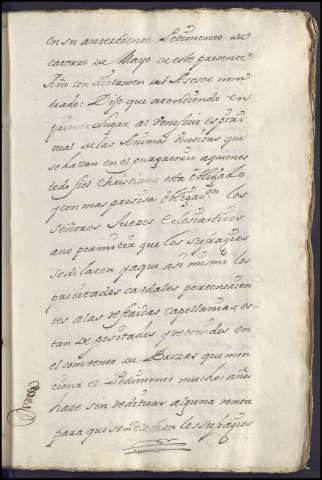 en su antecedente Pedimento de
catorze de Mayo de este presente
Año con Dictamen del Asesor nom
brado: Dijo que atendiendo en
primer lugar al Venefisio espirit
ual de las Animas venditas que
se hallan en el purgatorio aquienes
todo fiel Christiano esta obligado
y con mas presisa obligaon los
señores Jueses Eclesiasticos
ano permitir que los sufragios
se dilaten yaque asi mismo los
presitados caudales pertenecien
tes alas referidas capellanias, es
tan depositados y retenidos en
el convento de que men
ciona el Pedimento muchos años
hase sin redituar alguna renta
para que se selebren los sufragios